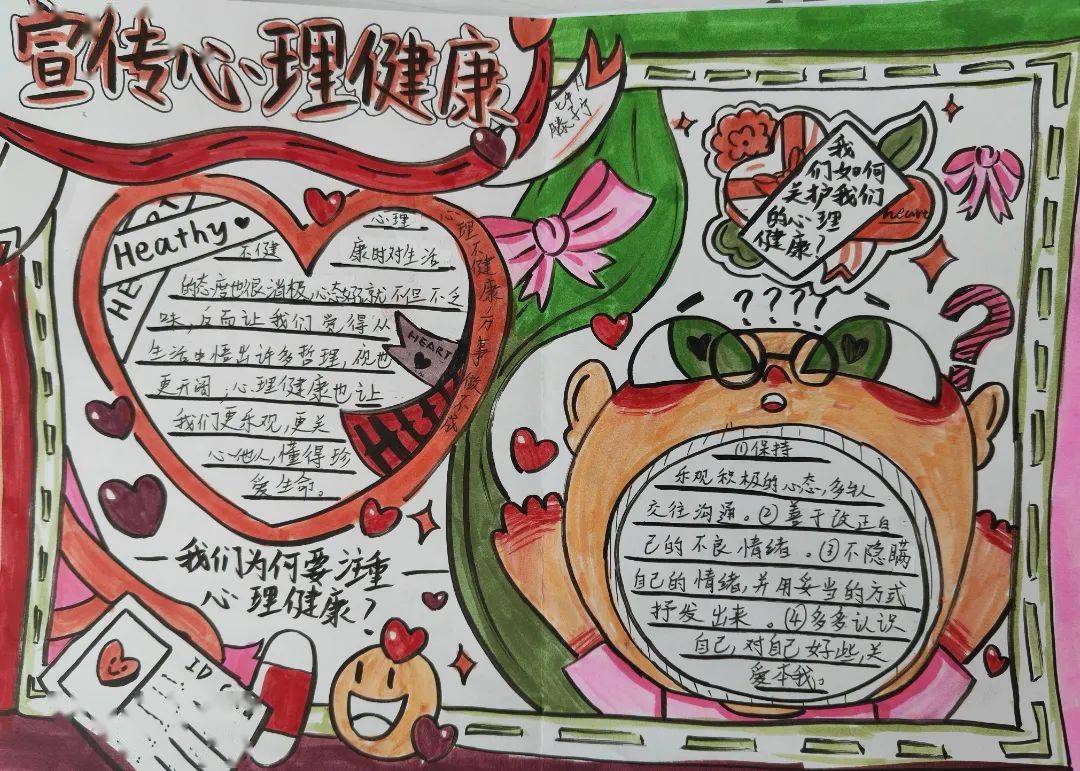 宣传心理健康
HEA
Heathy
HEA
心理
不健 康时对生活
的态度也很消极,心态好就不但不乏
味,反而让我们觉得从
生活中悟出许多哲理,视也
更开阔,心理健康也让
我们更乐观,更关
心他人,懂得珍
爱生命。
HEART
心理不健康万事做不成
我们为何要注重
心理健康?
ID
我
们如何
关护我们
的心理
健康?
heart
? ? ? ?
?
①保持
乐观积极的心态,多与人
交往沟通。②善于改正自
己的不良情绪。③不隐瞒
自己的情绪,并用妥当的方式
抒发出来。④多多认识
自己,对自己好些,关
爱本我。